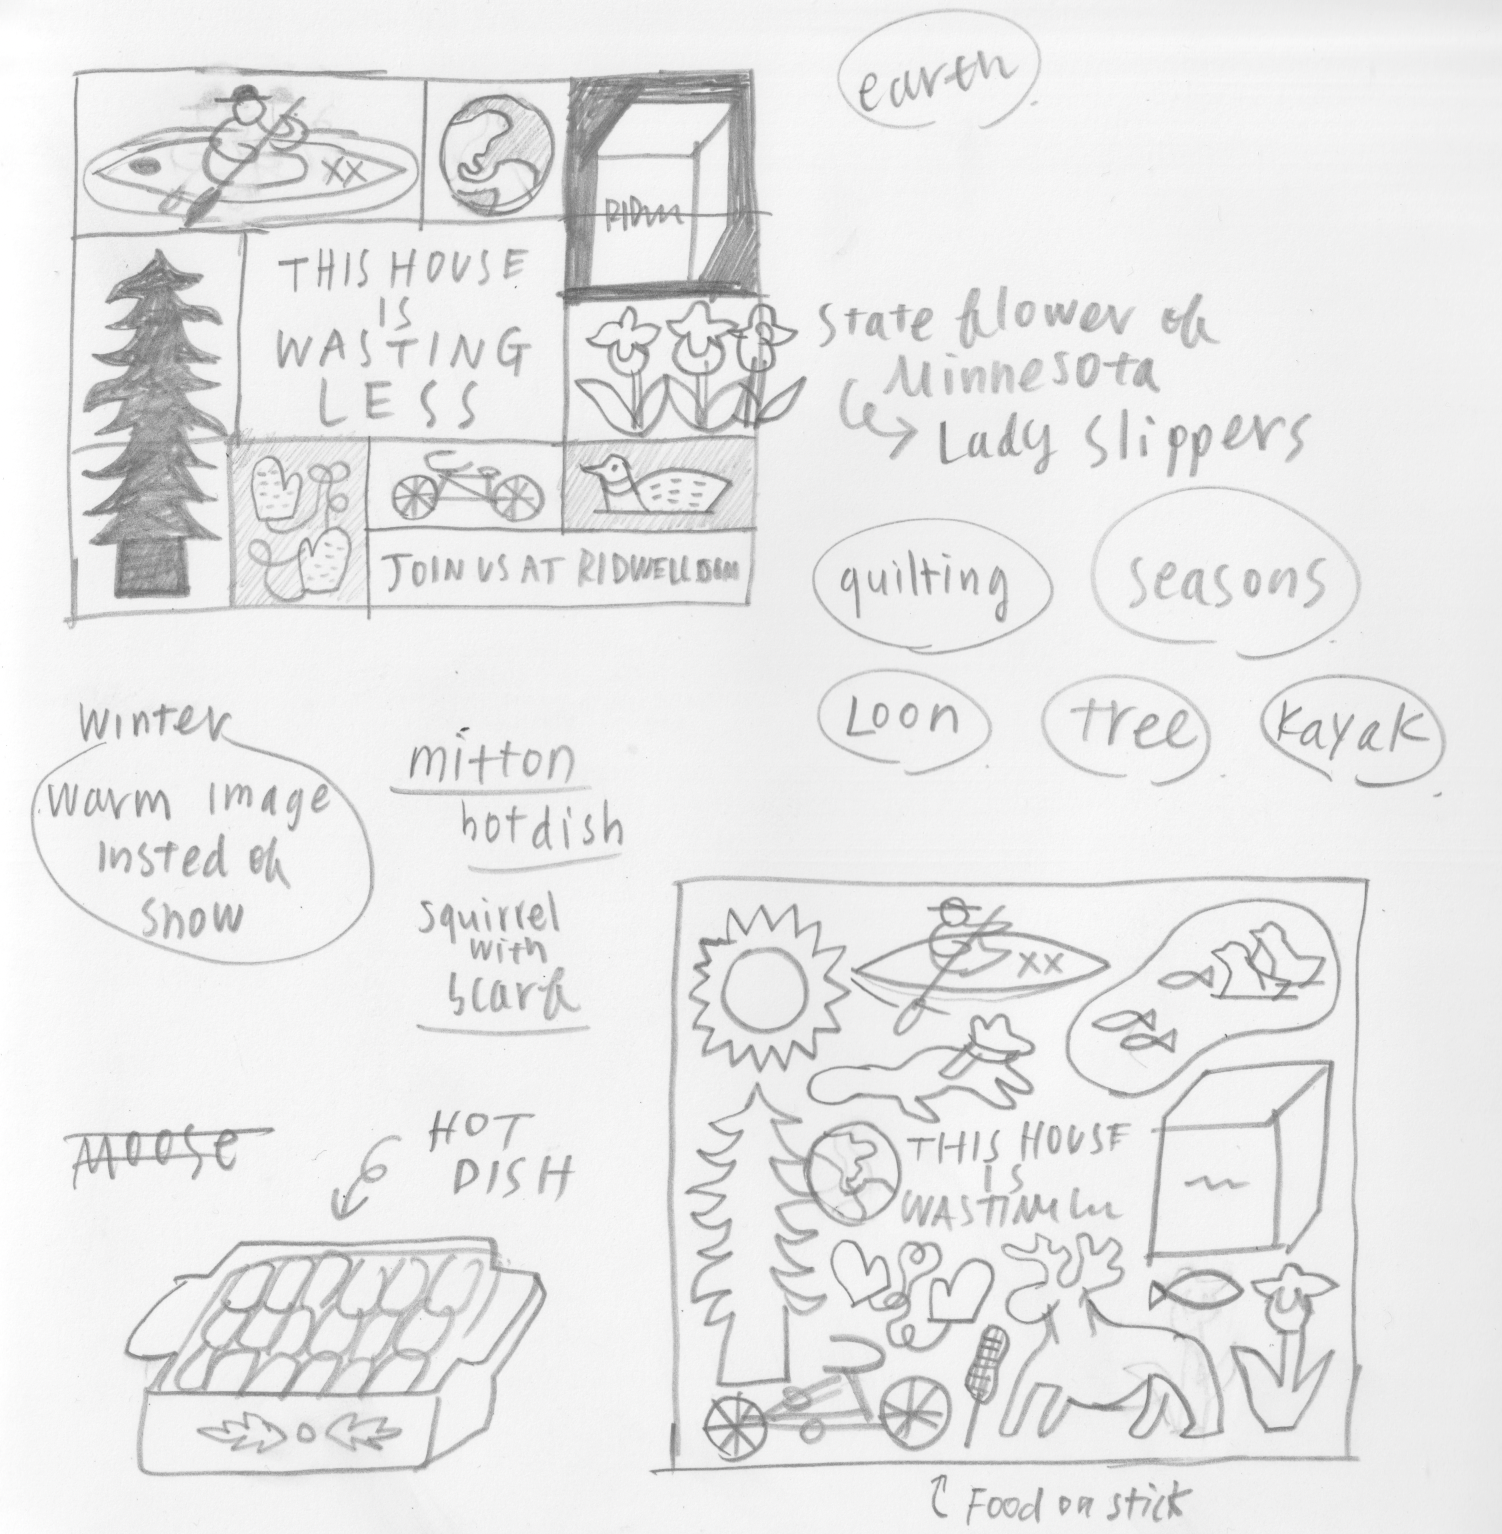 earth
XX
RID
THIS HOUSE
IS
WASTING
LESS
State flower of
Minnesota
Lady Slippers
JOIN US AT RIDWELL.COM
quilting
seasons
Loon
tree
kayak
Winter
Warm image
Insted of
Snow
mitton
hotdish
squirrel
with
scarf
MOOSE
HOT
DISH
XX
THIS HOUSE
IS
WASTING
Food on stick